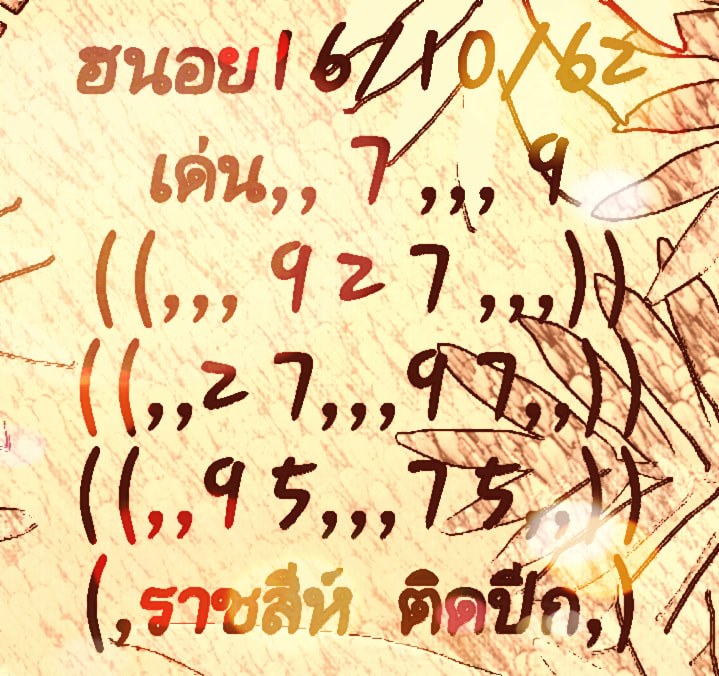 ฮนอย16/10/62
เด่น,, 7 ,,, 9
((,,, 9 2 7 ,,,))
((,,2 7,,,9 7,,))
((,,9 5,,,7 5,,))
(,ราชสีห์ ติดปีก,)